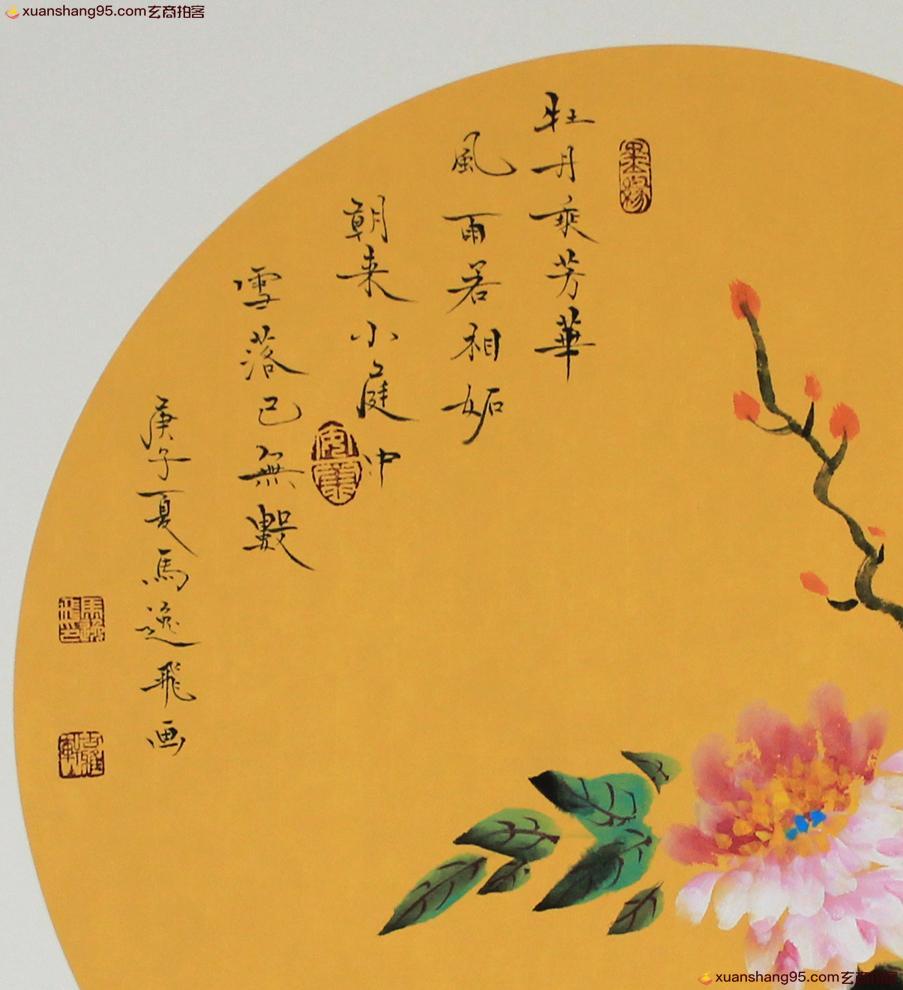 xuanshang95.com玄商拍客
牡丹乘芳華
風雨若相妬
朝来小庭冲
雪落已無數
庚子夏馬逸飛画
墨缘
馬逸飛印
xuanshang95.com玄商拍客